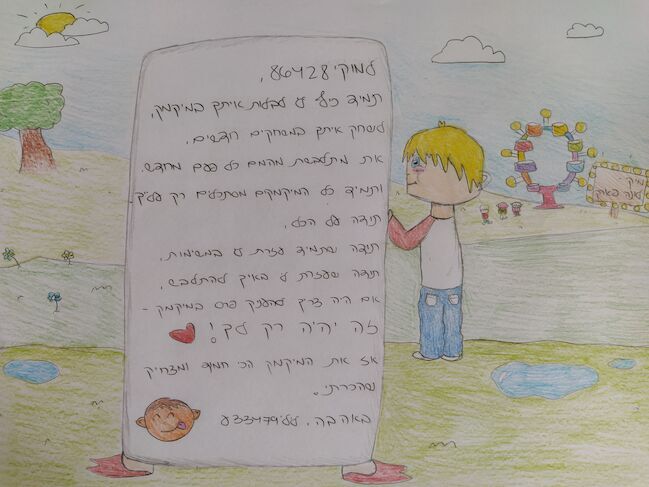 למוקי 86428,
תמיד כיף לי לבלות איתך במיקמק,
לשחק איתך במשחקים חדשים.
את מתלבשת מהמם כל פעם מחדש.
ותמיד כל המיקמקים מסתכלים רק עלייך.
תודה על הכל,
תודה שתמיד עזרת לי במשימות,
תודה שעזרת לי באיך להתלבש,
אם היה צריך להעניק פרס במיקמק -
זה יהיה רק לך!
אז את המיקמק הכי חמוד ומצחיק
שהכרתי.
באהבה,
מיק
לונה פארק